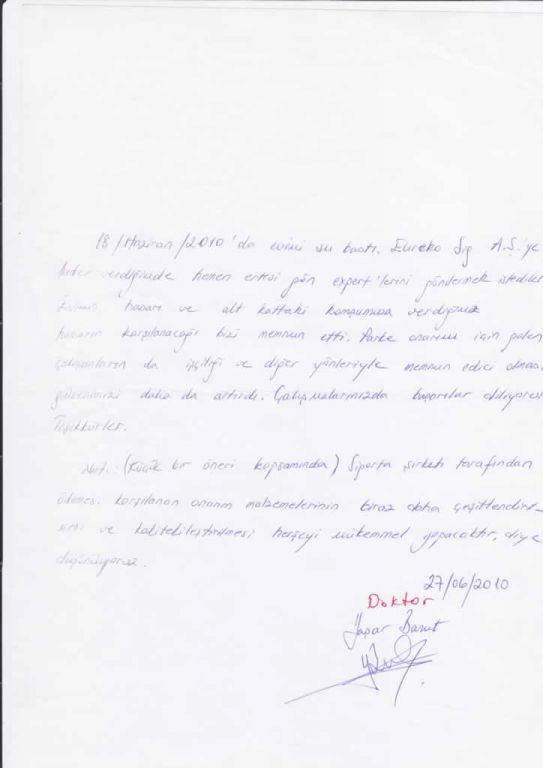 18/Haziran/2010'da evimi su bastı. Eureko Sig A.Ş.'ye
haber verdiğimizde hemen ertesi gün expert'lerini göndermek istediler
Evimin hasarı ve alt kattaki komşumuza verdiğimiz
hasarın karşılanacağı bizi memnun etti. Parke onarımı için gelen
çalışanların da işçiliği ve diğer yönleriyle memnun edici olması
güvenimizi daha da artırdı. Çalışmalarınızda başarılar diliyoruz
Teşekkürler.
Not.: (Küçük bir öneri kapsamında) Sigorta şirketi tarafından
ödemesi karşılanan onarım malzemelerinin biraz daha çeşitlendiril-
mesi ve kalitelileştirilmesi herşeyi mükemmel yapacaktır, diye
düşünüyoruz.
27/06/2010
Doktor
Yaşar